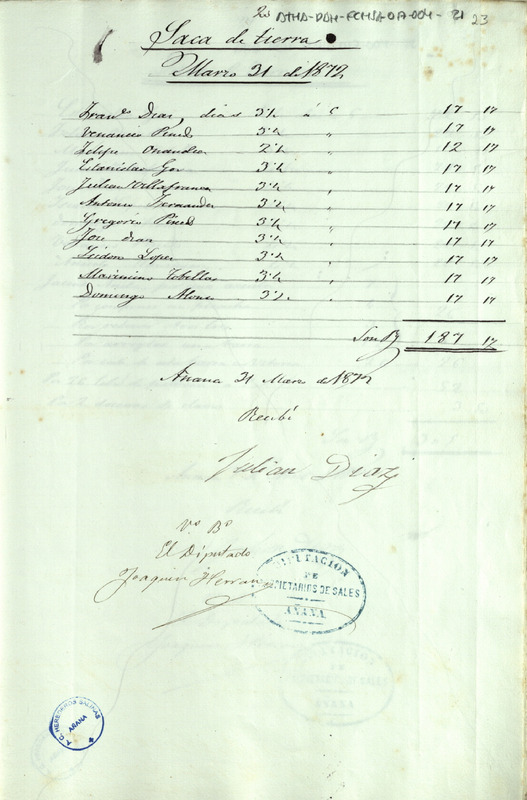 ATHA-DAH-FCHSA-07-004-21
23
Saca de tierra
Marzo 31 de 1872
Franco Diaz, dias 3½ á c 17 17
Venancio Pined 3½ " 17 17
Felipe Onandia 2½ " 12 17
Estanislao Goi 3½ " 17 17
Julian Villafranca 3½ " 17 17
Antonio Fernandez 3½ " 17 17
Gregorio Pined 3½ " 17 17
Jose diaz 3½ " 17 17
Isidoro Lopez 3½ " 17 17
Maximino Tobillas 3½ " 17 17
Domingo 3½ " 17 17
Son 187 17
Añana 31 Marzo de 1872
Recibí
Julian Diaz
Vº Bº
El Diputado
Joaquin Herran
DIPUTACION
DE
PROPIETARIOS DE SALES
AÑANA
A. C. HEREDEROS SALINAS
AÑANA